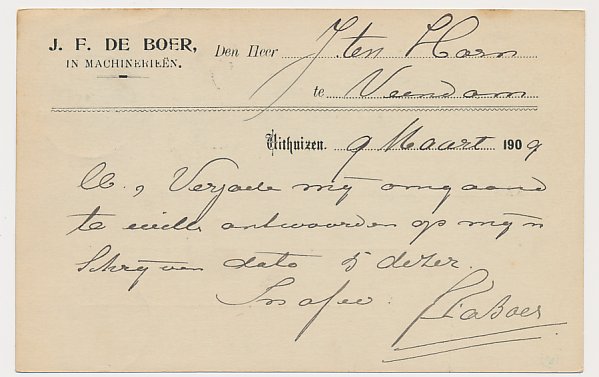 J. F. DE BOER,
IN MACHINERIEËN.
Den Heer J ten Horn
te Veendam
Uithuizen, 9 Maart 1909
M., Verzoeke mij omgaand
te willen antwoorden op mijn
schrijven dato 5 dezer.
JFdeBoer